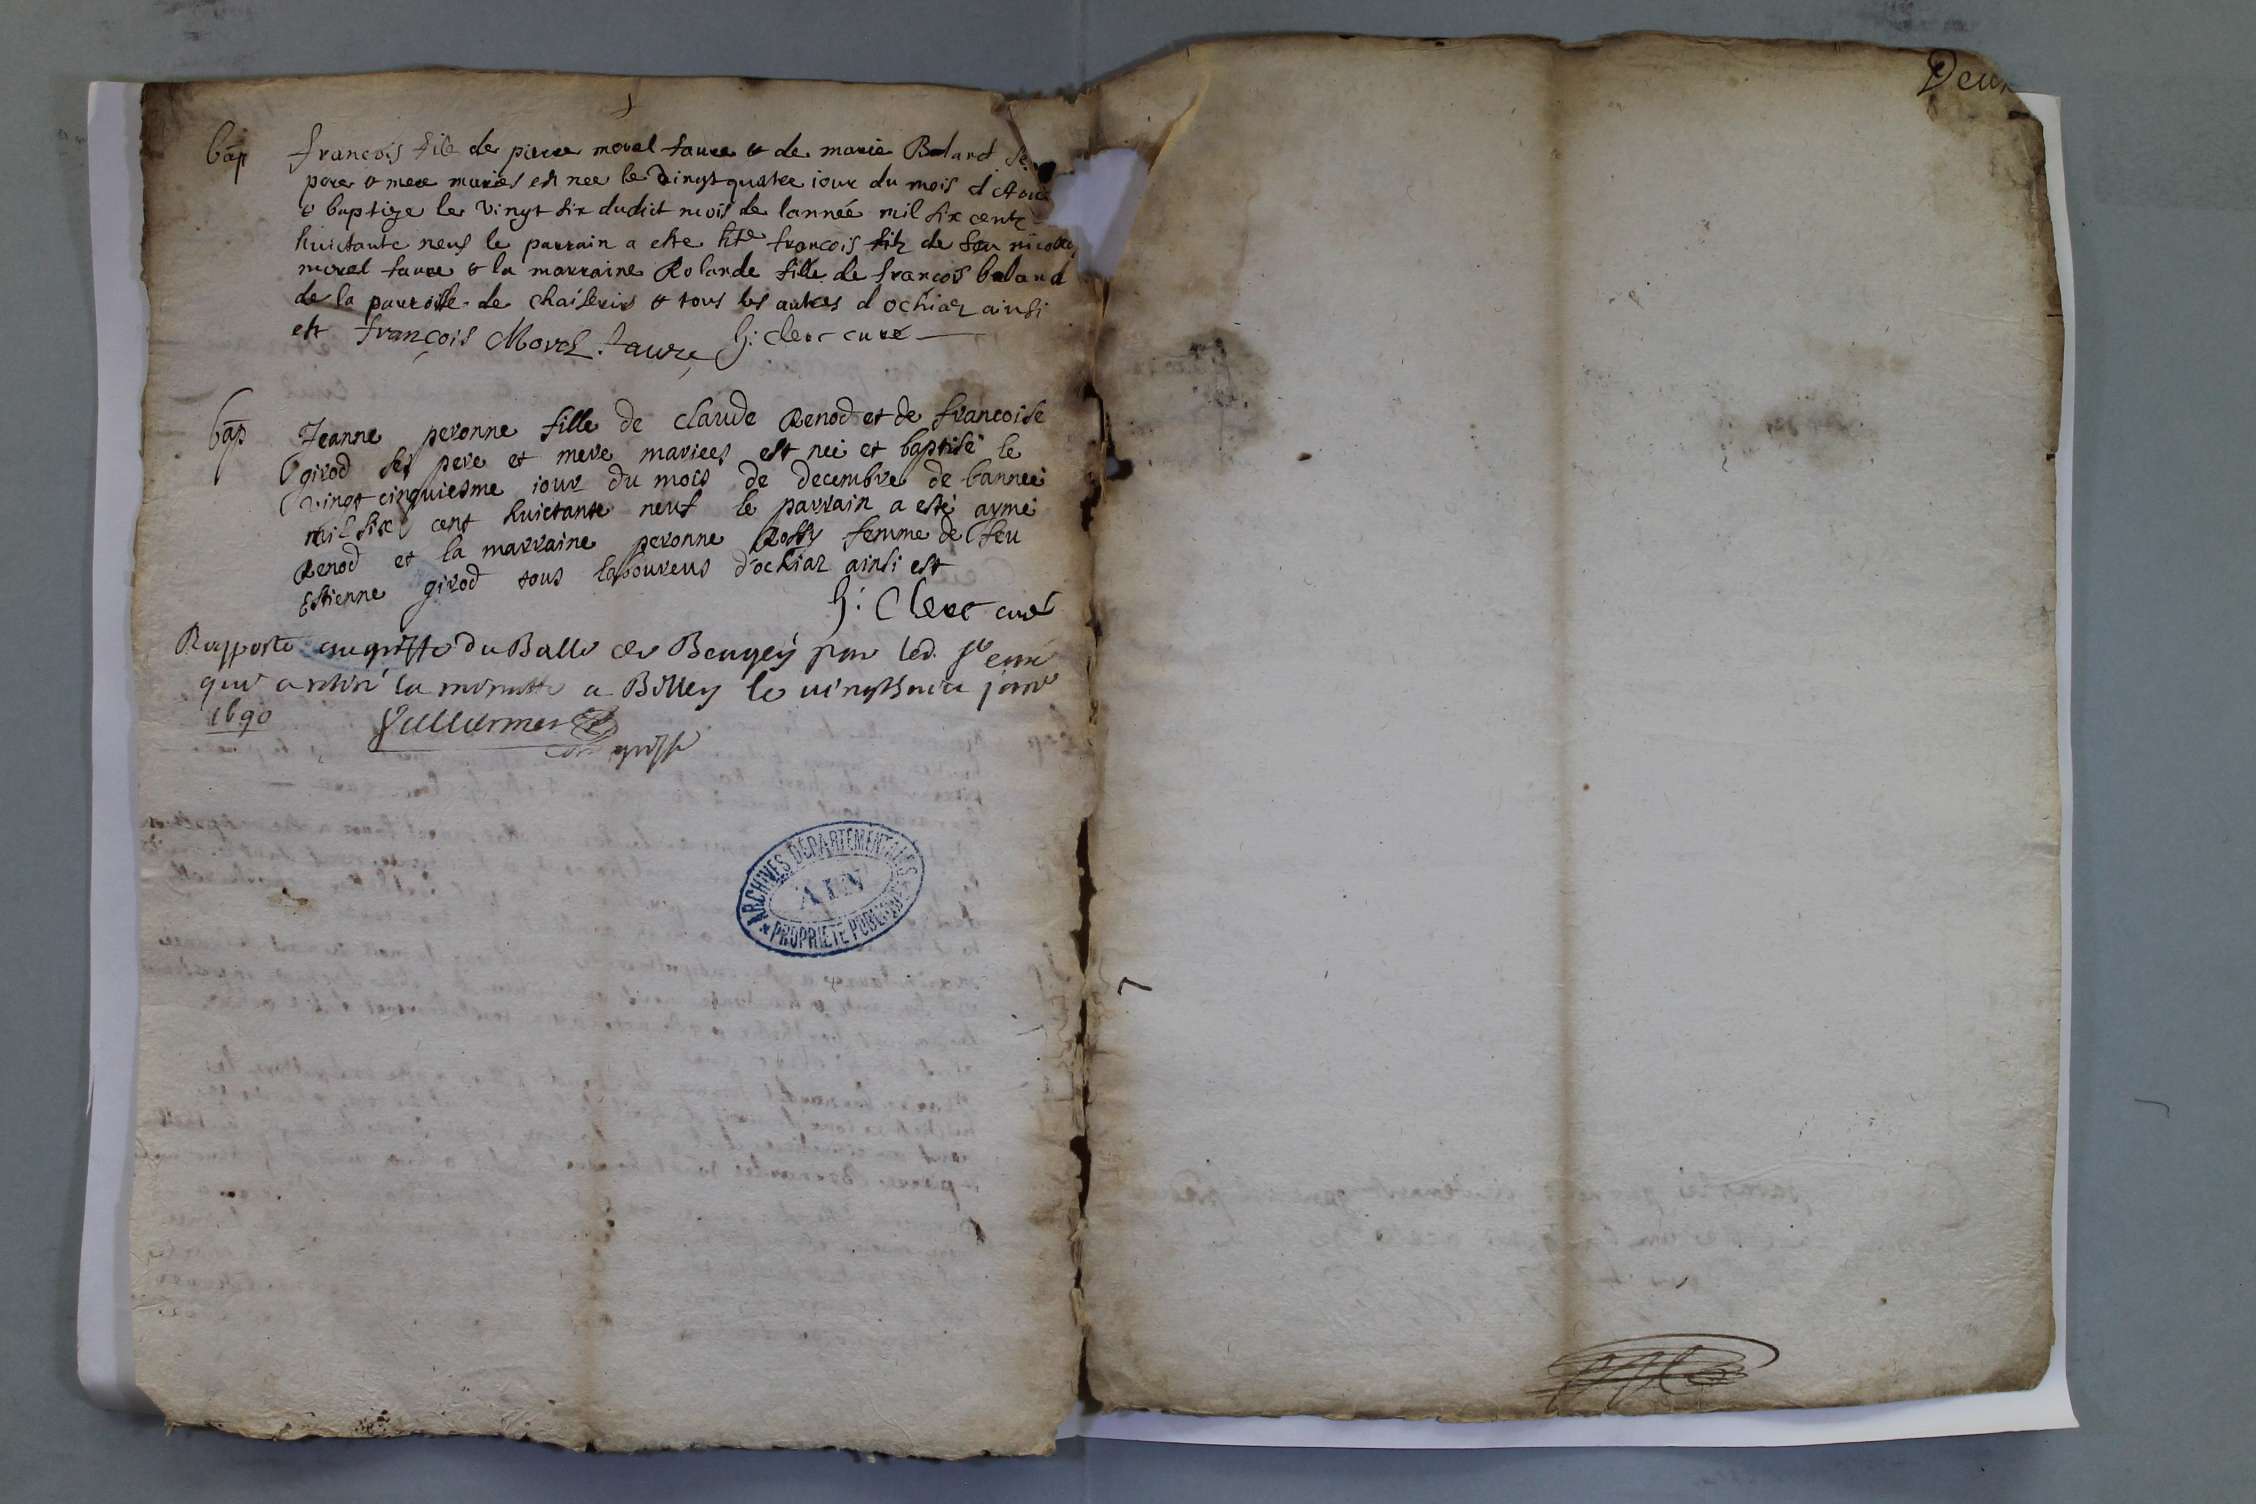 bap
françois fils de pierre morel faure & de marie Baland se
pere & mere mariés est nee le vingt quatre iour du mois d Aou
& baptize le vingt six dudict mois de lannée mil six centz
huictante neuf le parrain a este françois filz de feu nicolas
morel faure & la marraine Rolande fille de françois baland
de la parroisse de chaiserix & tous les autres d ochiaz ainsi
est françois Morel faure h: clerc curé
bap
Jeanne peronne fille de claude Renod et de francoise
girod ses pere et mere mariees est neé et baptisé le
vingt cinquiesme iour du mois de decembre de lanneé
mil six cent huictante neuf le parrain a esté aymé
Renod et la marraine peronne Rossy femme de feu
Estienne girod tous laboureus d'ochiaz ainsi est
h: Clerc curé
Rapporté au greffe du Balle de Beugey par led. sr curé
qui a retiré la minutte a Belley le vingthuict janr
1690
greffe
ARCHIVES DEPARTEMENTALES
AIN
PROPRIETE PUBLIQUE
Deux